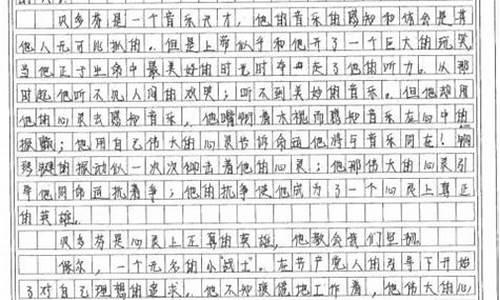 贝多芬是一个音乐天才，他的音乐的感知和体会是其
他人无可比拟的。但是上帝似乎和他开了一个巨大的玩笑
当他正于生命中最美好的时光时夺走了他的听力。从那
时起他听不见人间的欢笑；听不到美妙的音乐。但他却用
他的心灵去感知音乐，他嘴咬着木棍而感知音乐在心中的
振颤；他用自己伟大的心灵告诉命运他将与音乐同在！钢
琴键的振动似一次次叩击着他的心灵；他那伟大的心灵引
导他同命运抗着争；他的抗争使他成为了一个心灵上真正
的英雄。
贝多芬是心灵上正真的英雄，他教会我们坚强。
保尔，一个无名的小"战士"。在共产党人的引导下开始
了对自己理想的追求。他不知疲倦地工作着，他伟大的心